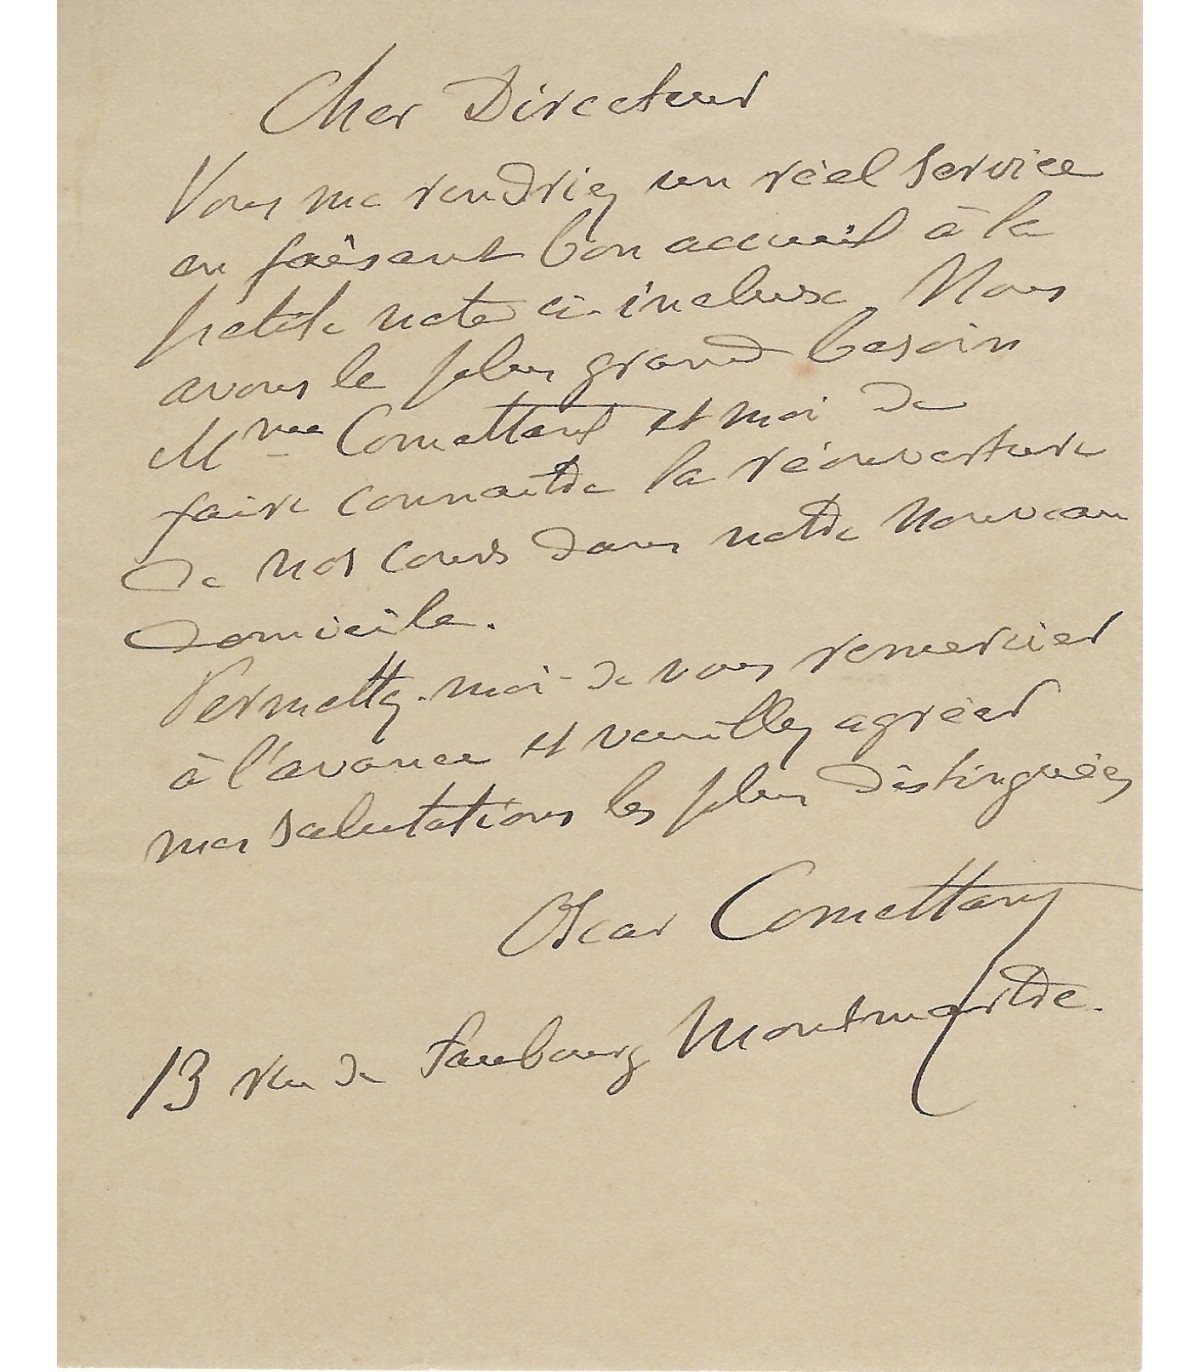 Cher Directeur
Vous me rendriez un réel service
en faisant bon accueil à la
petite note ci-incluse. Nous
avons le plus grand besoin
Mme Comettant et moi de
faire connaitre la réouverture
de nos cours dans notre nouveau
domicile.
Permettez-moi-de vous remercier
à l'avance et veuillez agréer
mes salutations les plus distinguées
Oscar Comettant
13 rue de Faubourg Montmartre.